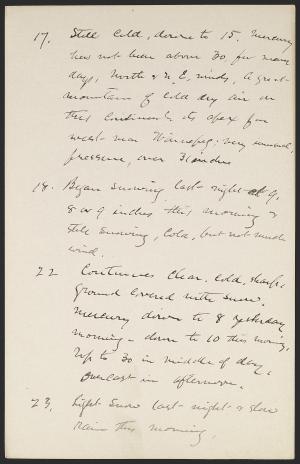 17. Still Cold, down to 15. Mercury
has not been above 30, for many
days, North & N.E. winds, A great
mountain of cold dry air on
this continent, its apex far
west near Winnipeg; very unusual,
pressure, over 31 inches
18. Began snowing last night at 9,
8 or 9 inches this morning &
still snowing, Cold, but not much
wind.
22 Continues clear, cold, sharp,
ground covered with snow.
Mercury down to 8 yesterday
morning – down to 10 this morning,
Up to 30 in middle of day,
Overcast in afternoon.
23, Light snow last night & slow
rain this morning.